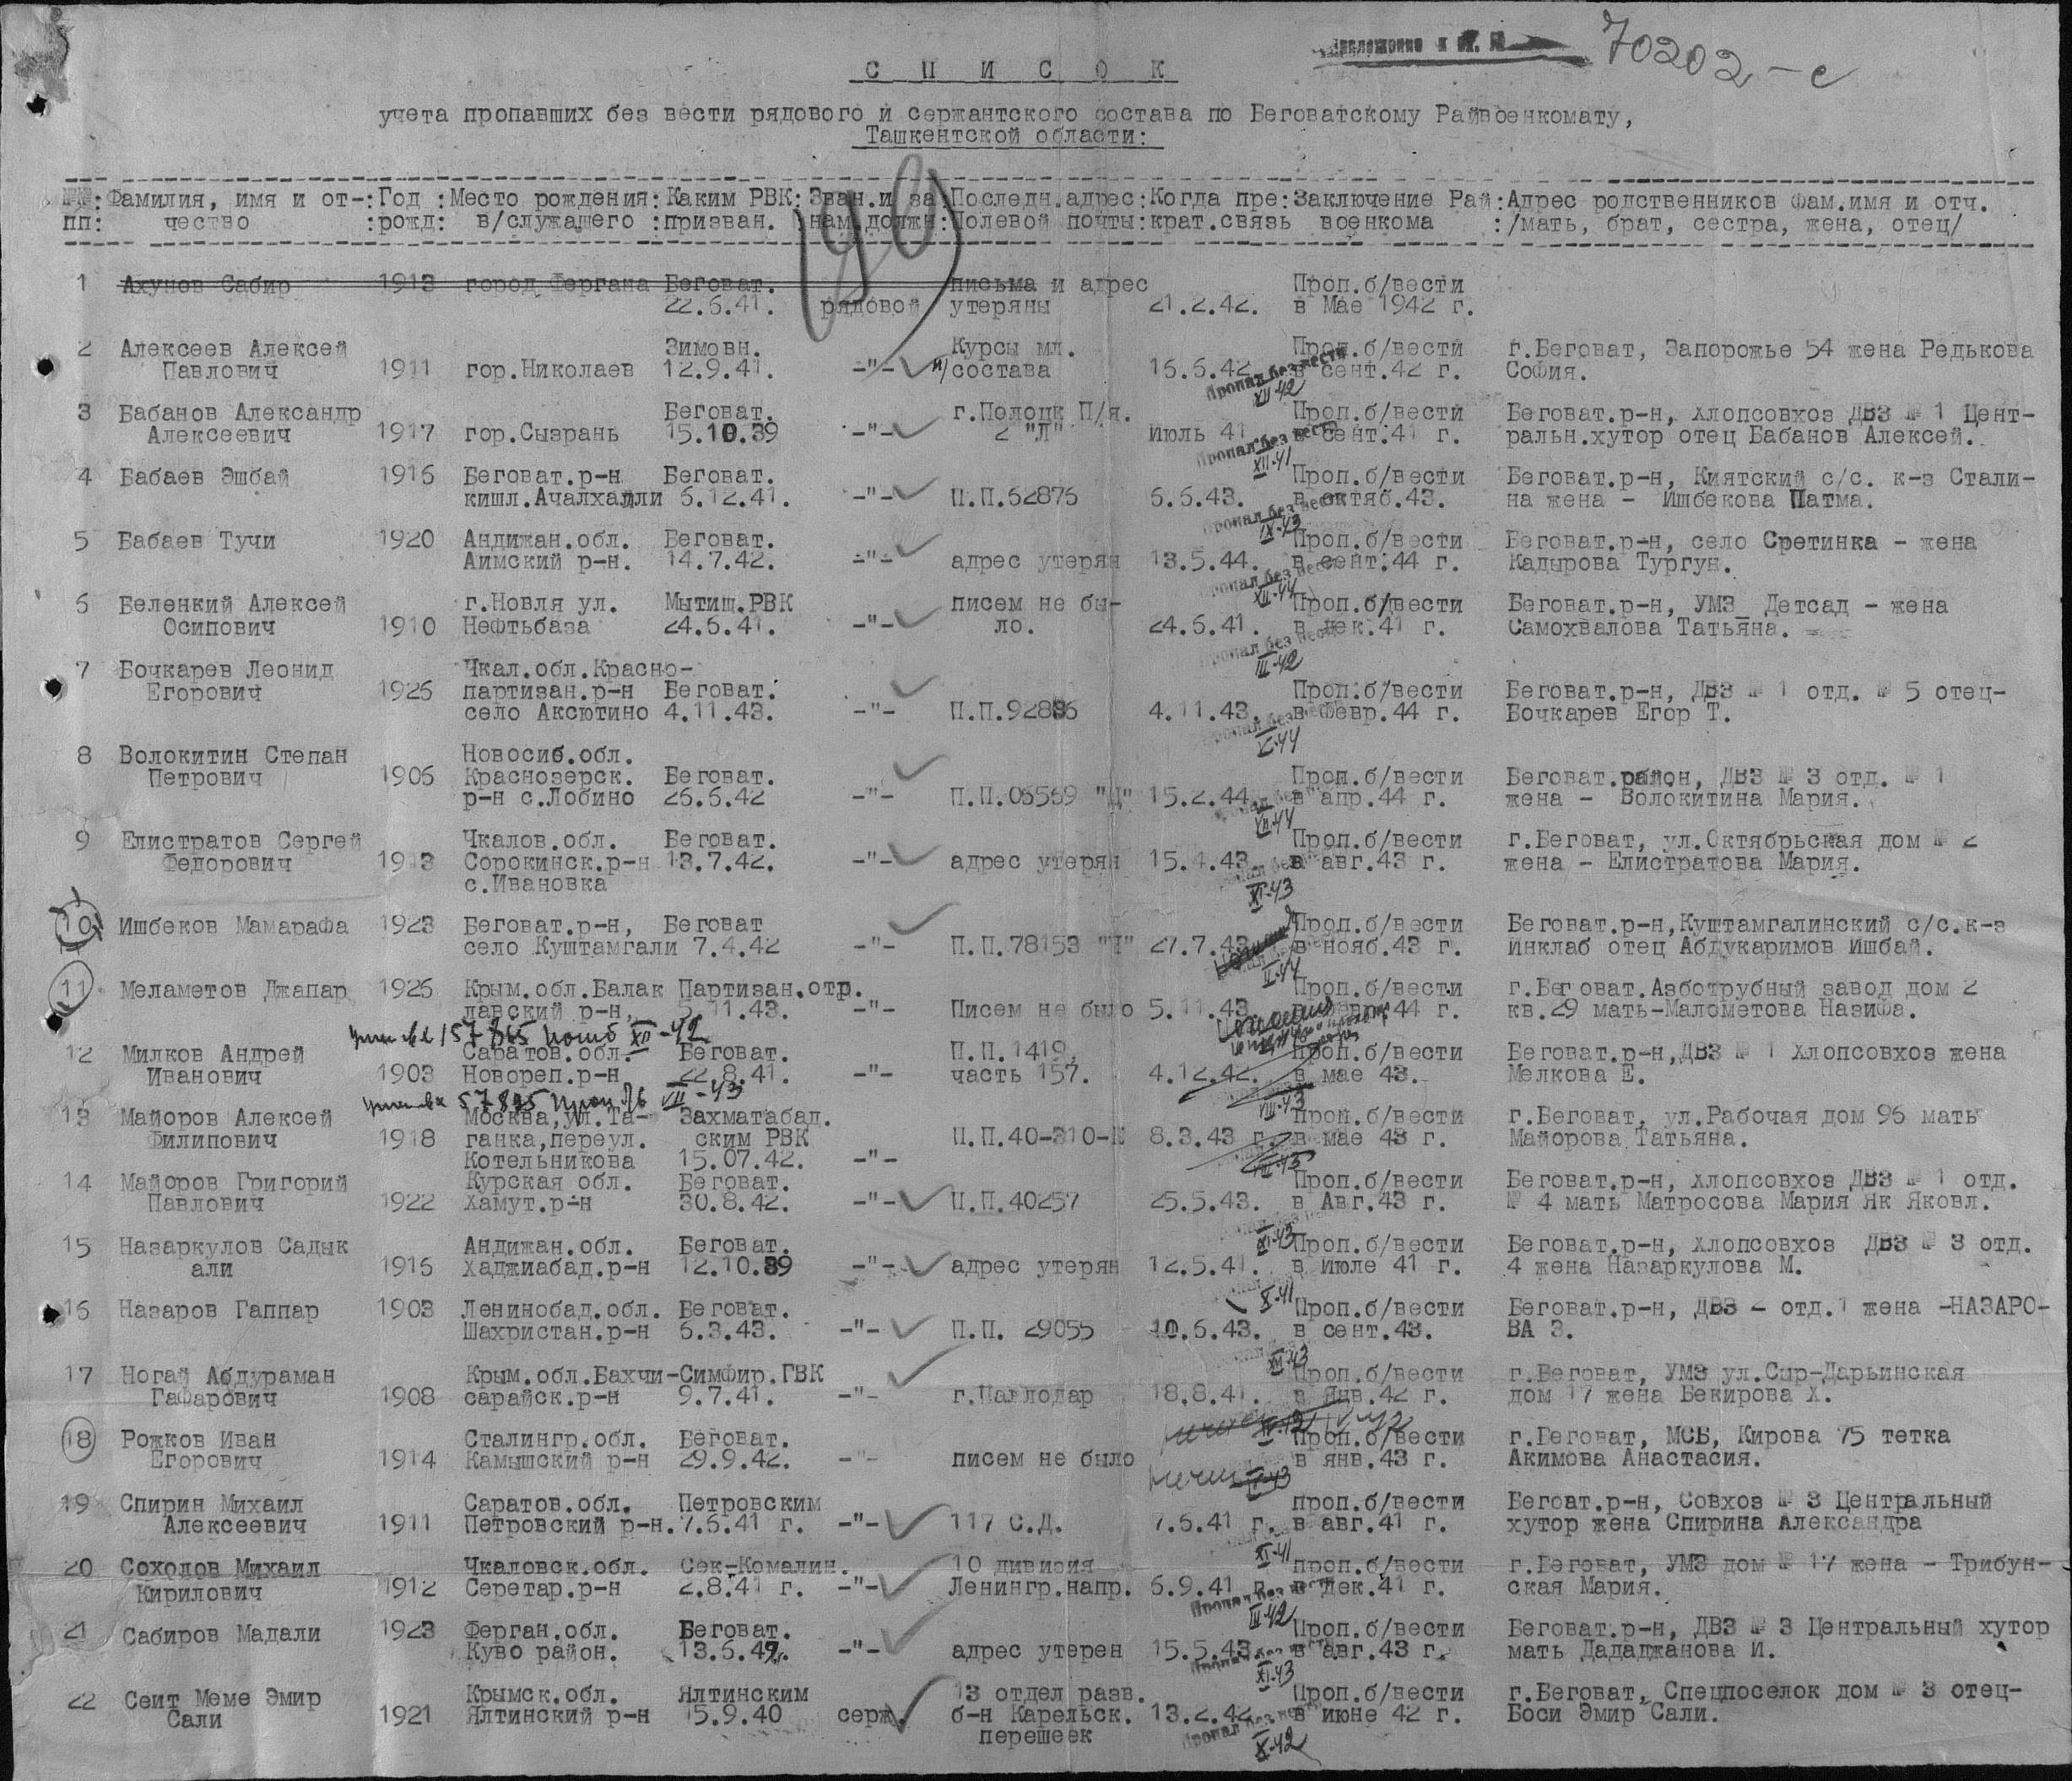 70202-с
С П И С О К
учета пропавших без вести рядового и сержантского состава по Беговатскому Райвоенкомату,
Ташкентской области:
№№: Фамилия, имя и от-: Год : Место рождения: Каким РВК: Зван.и за: Последн.адрес: Когда пре: Заключение Рай: Адрес родственников фам.имя и отч.
пп: чество : рожд: в/служащего : призван. : нам.должн: Полевой почты: крат.связь военкома : /мать, брат, сестра, жена, отец/
19
1 Ахунов Сабир 1913 город Фергана Беговат. письма и адрес Проп.б/вести
22.6.41. рядовой утеряны 21.2.42. в Мае 1942 г.
2 Алексеев Алексей Зимовн. Курсы мл. Проп.б/вести г.Беговат, Запорожье 54 жена Редькова
Павлович 1911 гор.Николаев 12.9.41. -"- н/состава 16.6.42. в сент.42 г. София.
Пропал без вести
XII-42
3 Бабанов Александр Беговат. г.Полоцк П/я. Проп.б/вести Беговат.р-н, хлопсовхоз ДВЗ № 1 Цент-
Алексеевич 1917 гор.Сызрань 15.10.39 -"- 2 "Л" июль 41 в сент.41 г. ральн.хутор отец Бабанов Алексей.
Пропал без вести
XII-41
4 Бабаев Эшбай 1916 Беговат.р-н Беговат. Проп.б/вести Беговат.р-н, Киятский с/с. к-з Стали-
кишл.Ачалхайли 6.12.41. -"- П.П.62876 6.6.43. в октяб.43. на жена - Ишбекова Патма.
Пропал без вести
IX-43
5 Бабаев Тучи 1920 Андижан.обл. Беговат. Проп.б/вести Беговат.р-н, село Сретинка - жена
Аимский р-н. 14.7.42. -"- адрес утерян 13.5.44. в сент.44 г. Кадырова Тургун.
Пропал без вести
XII-44
6 Беленкий Алексей г.Новля ул. Мытищ.РВК писем не бы- Проп.б/вести Беговат.р-н, УМЗ Детсад - жена
Осипович 1910 Нефтьбаза 24.6.41. -"- ло. 24.6.41. в дек.41 г. Самохвалова Татьяна.
Пропал без вести
III-42
7 Бочкарев Леонид Чкал.обл.Красно-
Егорович 1926 партизан.р-н Беговат. Проп.б/вести Беговат.р-н, ДВЗ № 1 отд. № 5 отец-
село Аксютино 4.11.43. -"- П.П.92836 4.11.43. в февр.44 г. Бочкарев Егор Т.
V-44
8 Волокитин Степан Новосиб.обл.
Петрович 1906 Краснозерск. Беговат. Проп.б/вести Беговат.район, ДВЗ № 3 отд. № 1
р-н с.Лобино 26.6.42 -"- П.П.06569 "Д" 15.2.44. в апр.44 г. жена - Волокитина Мария.
9 Елистратов Сергей Чкалов.обл. Беговат. Проп.б/вести г.Беговат, ул.Октябрьская дом № 2
Федорович 1913 Сорокинск.р-н 13.7.42. -"- адрес утерян 15.4.43. в авг.43 г. жена - Елистратова Мария.
с.Ивановка
XI-43
10 Ишбеков Мамарафа 1923 Беговат.р-н, Беговат Проп.б/вести Беговат.р-н,Куштамгалинский с/с.к-з
село Куштамгали 7.4.42 -"- П.П.78153 "Н" 27.7.43 в нояб.43 г. Инклаб отец Абдукаримов Ишбай.
II-44
11 Меламетов Джапар 1926 Крым.обл.Балак Партизан.отр. Проп.б/вести г.Беговат.Азботрубный завод дом 2
лавский р-н, 5.11.43. -"- Писем не было 5.11.43. 44 г. кв.29 мать-МалометоваНазифа.
XII-42
12 Милков Андрей Саратов.обл. Беговат. П.П.1419, Проп.б/вести Беговат.р-н,ДВЗ № 1 Хлопсовхоз жена
Иванович 1903 Новореп.р-н 22.8.41. -"- часть 157. 4.12.42. в мае 43. Мелкова Е.
VII-43
VIII-43
13 Майоров Алексей Москва,ул.Та- Захматабад. проп.б/вести г.Беговат, ул.Рабочая дом 96 мать
Филипович 1918 ганка,переул. ским РВК П.П.40-310-К 8.3.43 г. в мае 43 г. Майорова Татьяна.
Котельникова 15.07.42. -"-
VIII-43
14 Майоров Григорий Курская обл. Беговат. Проп.б/вести Беговат.р-н, хлопсовхоз ДВЗ № 1 отд.
Павлович 1922 Хамут.р-н 30.8.42. -"- П.П.40257 25.5.43. в Авг.43 г. № 4 мать Матросова Мария Як Яковл.
XI-43
15 Назаркулов Садык Андижан.обл. Беговат. Проп.б/вести Беговат.р-н, Хлопсовхоз ДВЗ № 3 отд.
али 1916 Хаджиабад.р-н 12.10.39 -"- адрес утерян 12.5.41. в июле 41 г. 4 жена Назаркулова М.
X-41
16 Назаров Гаппар 1903 Ленинобад.обл. Беговат. Проп.б/вести Беговат.р-н, ДВЗ 2 отд.1 жена -НАЗАРО-
Шахристан.р-н 6.3.43. -"- П.П. 29055 10.6.43. в сент.43. ВА З.
XII-43
17 Ногай Абдураман Крым.обл.Бахчи-Симфир.ГВК Проп.б/вести г.Беговат, УМЗ ул.Сыр-Дарьинская
Гафарович 1908 сарайск.р-н 9.7.41. -"- г.Павлодар 18.8.41. в Янв.42 г. дом 17 жена Бекирова Х.
18 Рожков Иван Сталингр.обл. Беговат. Проп.б/вести г.Беговат, МСБ, Кирова 75 тетка
Егорович 1914 Камышский р-н 29.9.42. -"- писем не было в янв.43 г. Акимова Анастасия.
19 Спирин Михаил Саратов.обл. Петровским проп.б/вести Бегоат.р-н, Совхоз № 3 Центральный
Алексеевич 1911 Петровский р-н. 7.6.41 г. -"- 117 С.Д. 7.6.41 г. в авг.41 г. хутор жена Спирина Александра
XI-41
20 Соходов Михаил Чкаловск.обл. Сек-Комалин. 10 дивизия проп.б/вести г.Беговат, УМЗ дом № 17 жена - Трибун-
Кирилович 1912 Серетар.р-н 2.8.41 г. -"- Ленингр.напр. 6.9.41 г. в дек.41 г. ская Мария.
Пропал без вести
III-42
21 Сабиров Мадали 1923 Ферган.обл. Беговат. Проп.б/вести Беговат.р-н, ДВЗ № 3 Центральный хутор
Куво район. 13.6.42. -"- адрес утерен 15.5.43. в авг.43 г. мать Дададжанова И.
Пропал без вести
XI-43
22 Сеит Меме Эмир Крымск.обл. Ялтинским 13 отдел разв. Проп.б/вести г.Беговат, Спецпоселок дом № 3 отец-
Сали 1921 Ялтинский р-н 15.9.40 серж. б-н Карельск. 13.2.42. в июне 42 г. Боси Эмир Сали.
перешеек
Пропал без вести
X-42